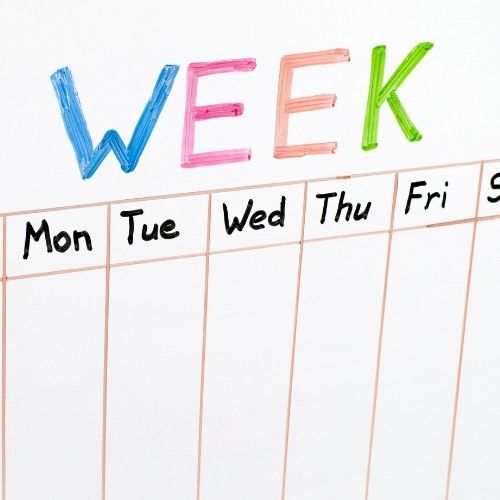 WEEK
Mon Tue Wed Thu Fri S